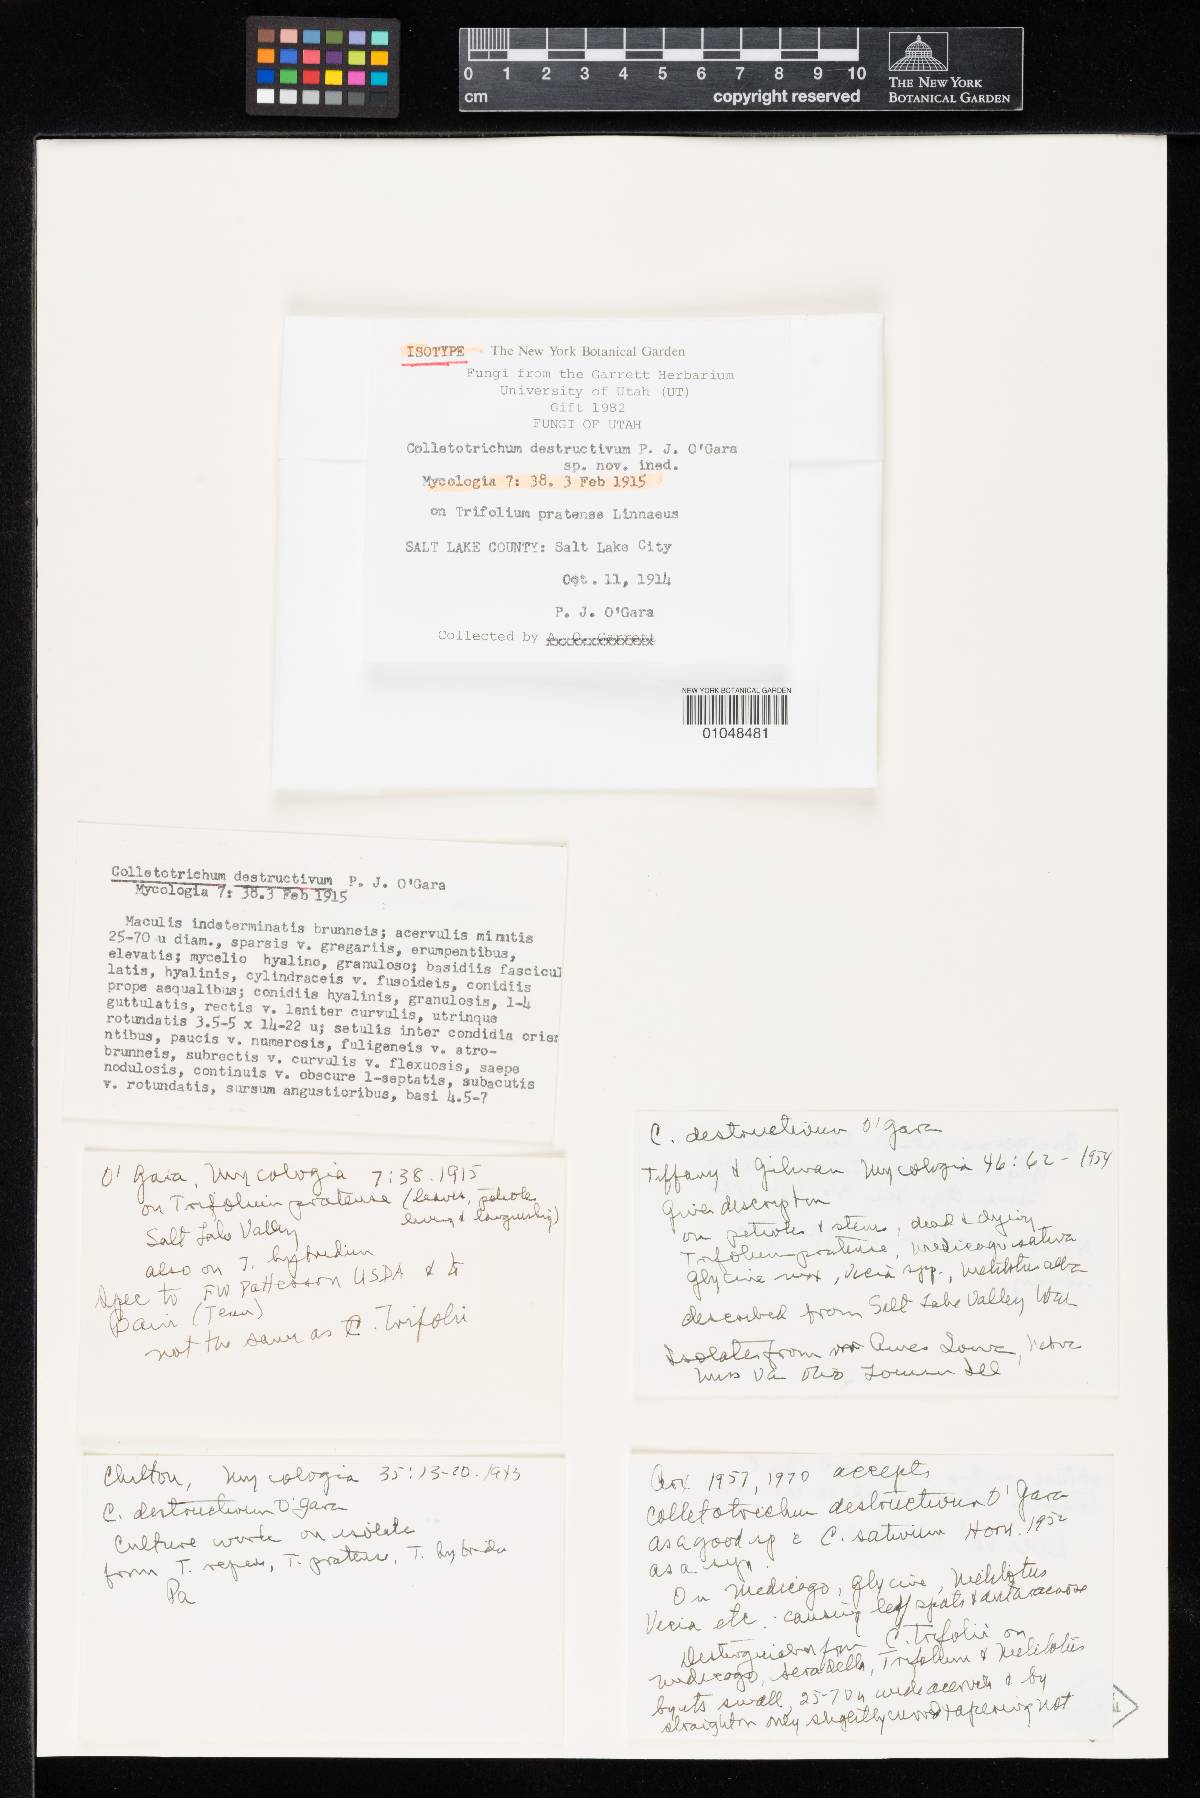 0 1 2 3 4 5 6 7 8 9 10
cm
copyright reserved
THE NEW YORK
BOTANICAL GARDEN
ISOTYPE The New York Botanical Garden
Fungi from the Garrett Herbarium
University of Utah (UT)
Gift 1982
FUNGI OF UTAH
Colletotrichum destructivum P. J. O'Gara
sp. nov. ined.
Mycologia 7: 38. 3 Feb 1915
on Trifolium pratense Linnaeus
SALT LAKE COUNTY: Salt Lake City
Oct. 11, 1914
P. J. O'Gara
Collected by A. O. Garrett
NEW YORK BOTANICAL GARDEN
01048481
Colletotrichum destructivum P. J. O'Gara
Mycologia 7: 38.3 Feb 1915
Maculis indeterminatis brunneis; acervulis minutis
25-70 u diam., sparsis v. gregariis, erumpentibus,
elevatis; mycelio hyalino, granuloso; basidiis fascicul
latis, hyalinis, cylindraceis v. fusoideis, conidiis
prope aequalibus; conidiis hyalinis, granulosis, 1-4
guttulatis, rectis v. leniter curvulis, utrinque
rotundatis 3.5-5 x 14-22 u; setulis inter condidia orien
ntibus, paucis v. numerosis, fuligeneis v. atro-
brunneis, subrectis v. curvulis v. flexuosis, saepe
nodulosis, continuis v. obscure 1-septatis, subacutis
v. rotundatis, sursum angustioribus, basi 4.5-7
O'Gara, Mycologia 7:38.1915
on Trifolium pratense (leaves, petiole
living & languishing)
Salt Lake Valley
also on T. hybridum
Spec to FW Patterson USDA &
Bain (Tenn)
not the same as C. Trifolii
Chilton, Mycologia 35:13-20.1943
C. destructivum O'Gara
Culture work on isolate
from T. repens, T. pratense, T. hybridum
Pa
C. destructivum O'Gara
Tiffany & Gilman Mycologia 46:62- 1954
gives description
on petioles & stems, dead & dying
Trifolium pratense, Medicago sativa
Glycine max, Vicia spp., Melilotus alba
described from Salt Lake Valley Utah
Isolates from Ames Iowa,
Miss Va Ohio
Arx 1957, 1970 accepts
Colletotrichum destructivum O'Gara
as a good sp c C. sativum Horn. 1952
as a syn.
On Medicago, Glycine, Melilotus
Vicia etc. causing leaf spots & anthracnose
Distinguished from C. Trifolii on
Medicago, Seradella, Trifolium & Melilotus
by its small, 25-70u wide acervuli & by
straight or only slightly curved tapering not